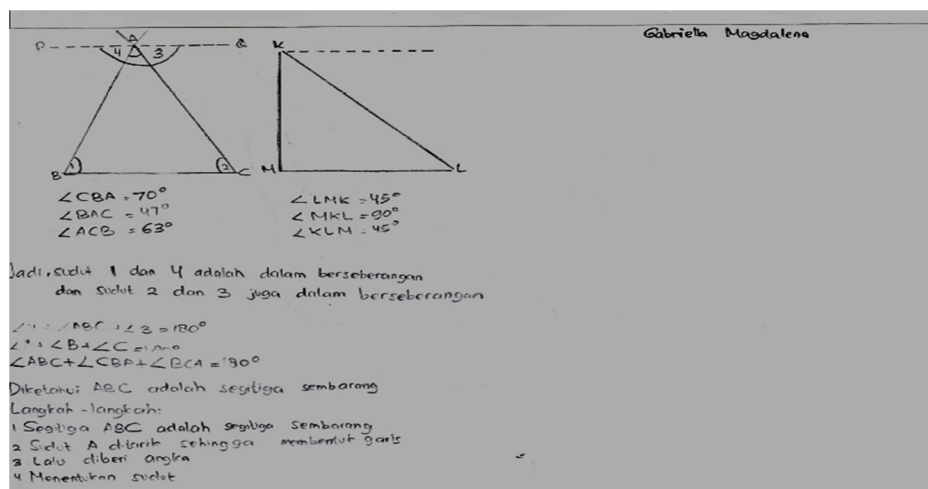 Gabriella Magdalena
P A Q
4 3
B 1 2 C
K
M L
∠CBA = 70°
∠BAC = 47°
∠ACB = 63°
∠LMK = 45°
∠MKL = 90°
∠KLM = 45°
Jadi, sudut 1 dan 4 adalah dalam berseberangan
dan sudut 2 dan 3 juga dalam berseberangan
∠ABC + ∠3 = 180°
∠B + ∠C =
∠ABC + ∠CBA + ∠BCA = 180°
Diketahui ABC adalah segitiga sembarang
Langkah-langkah:
1 Segitiga ABC adalah segitiga sembarang
2 Sudut A ditarik sehingga membentuk garis
3 Lalu diberi angka
4 Menentukan sudut